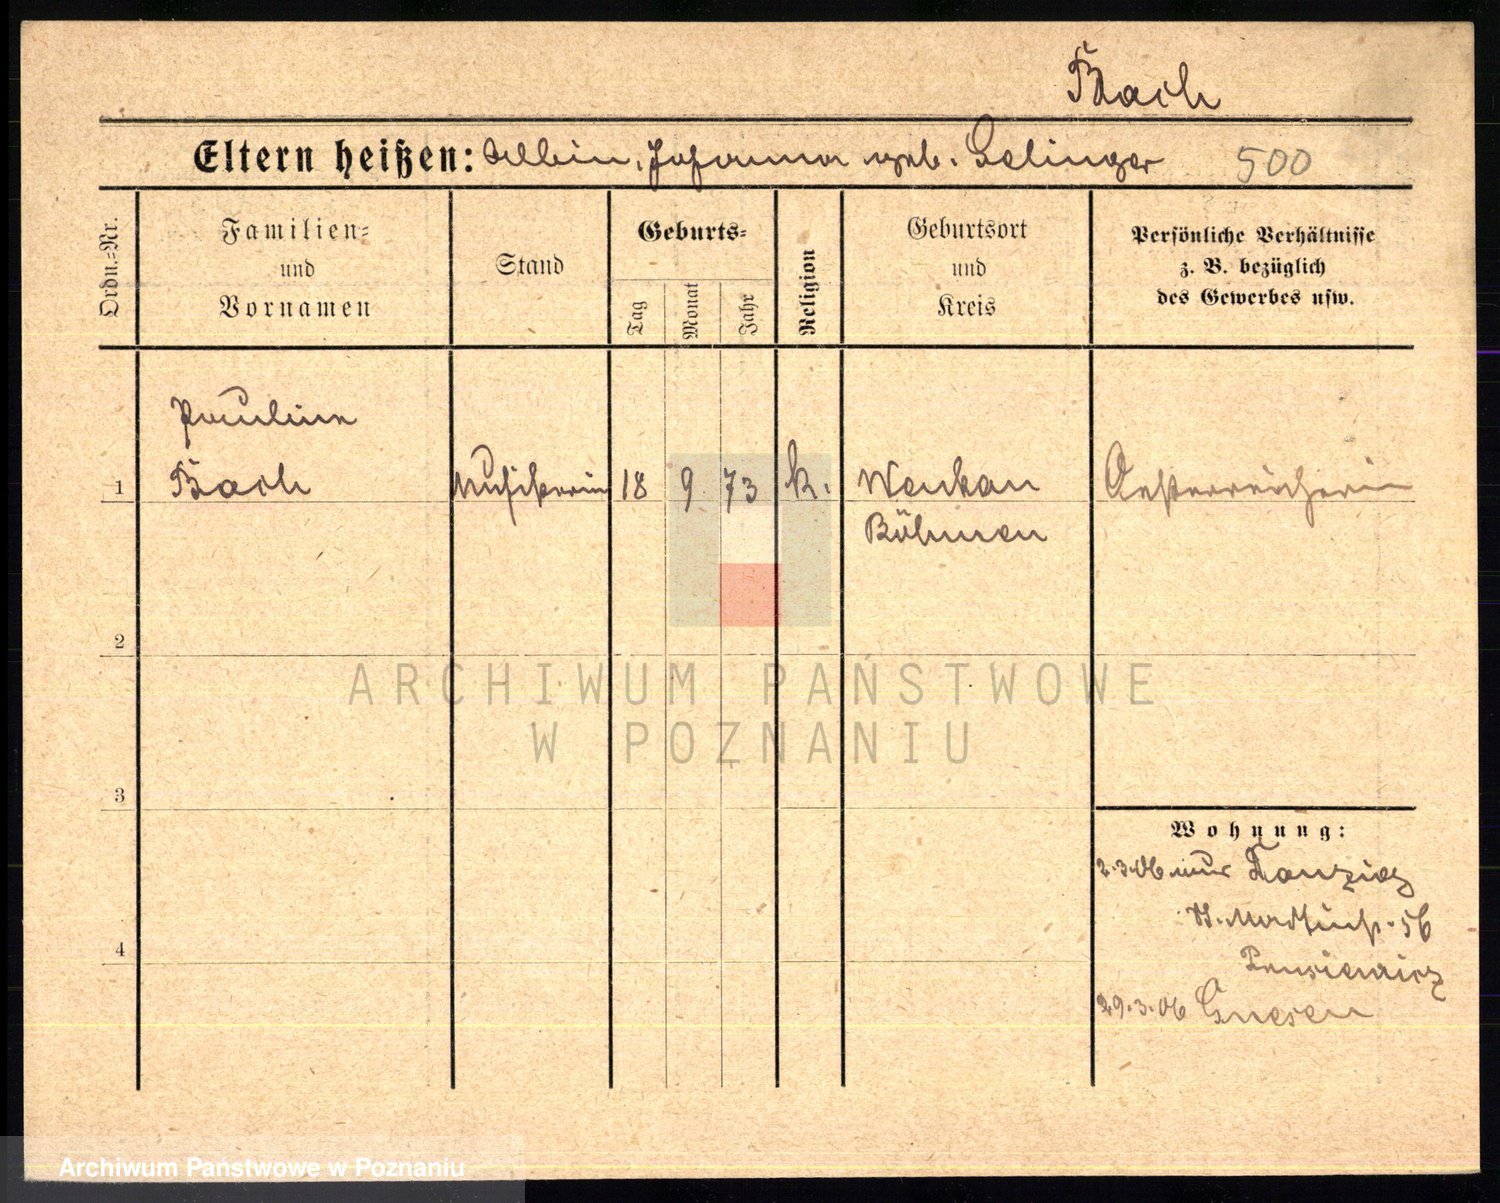 Bach
Eltern heißen: Albin, Johanna geb. Gelinger 500
Ordn.-Nr.
Familien-
und
Vornamen
Stand
Geburts-
Tag
Monat
Jahr
Religion
Geburtsort
und
Kreis
Persönliche Verhältnisse
z. B. bezüglich
des Gewerbes usw.
Pauline
1 Bach Musikerin 18 9 73 k. Oesterreicherin
Böhmen
2
ARCHIWUM PAŃSTWOWE
W POZNANIU
3
Wohnung:
2.3.06 aus Danzig
St. Martinstr. 56
4
29.3.06 Gnesen
Archiwum Państwowe w Poznaniu